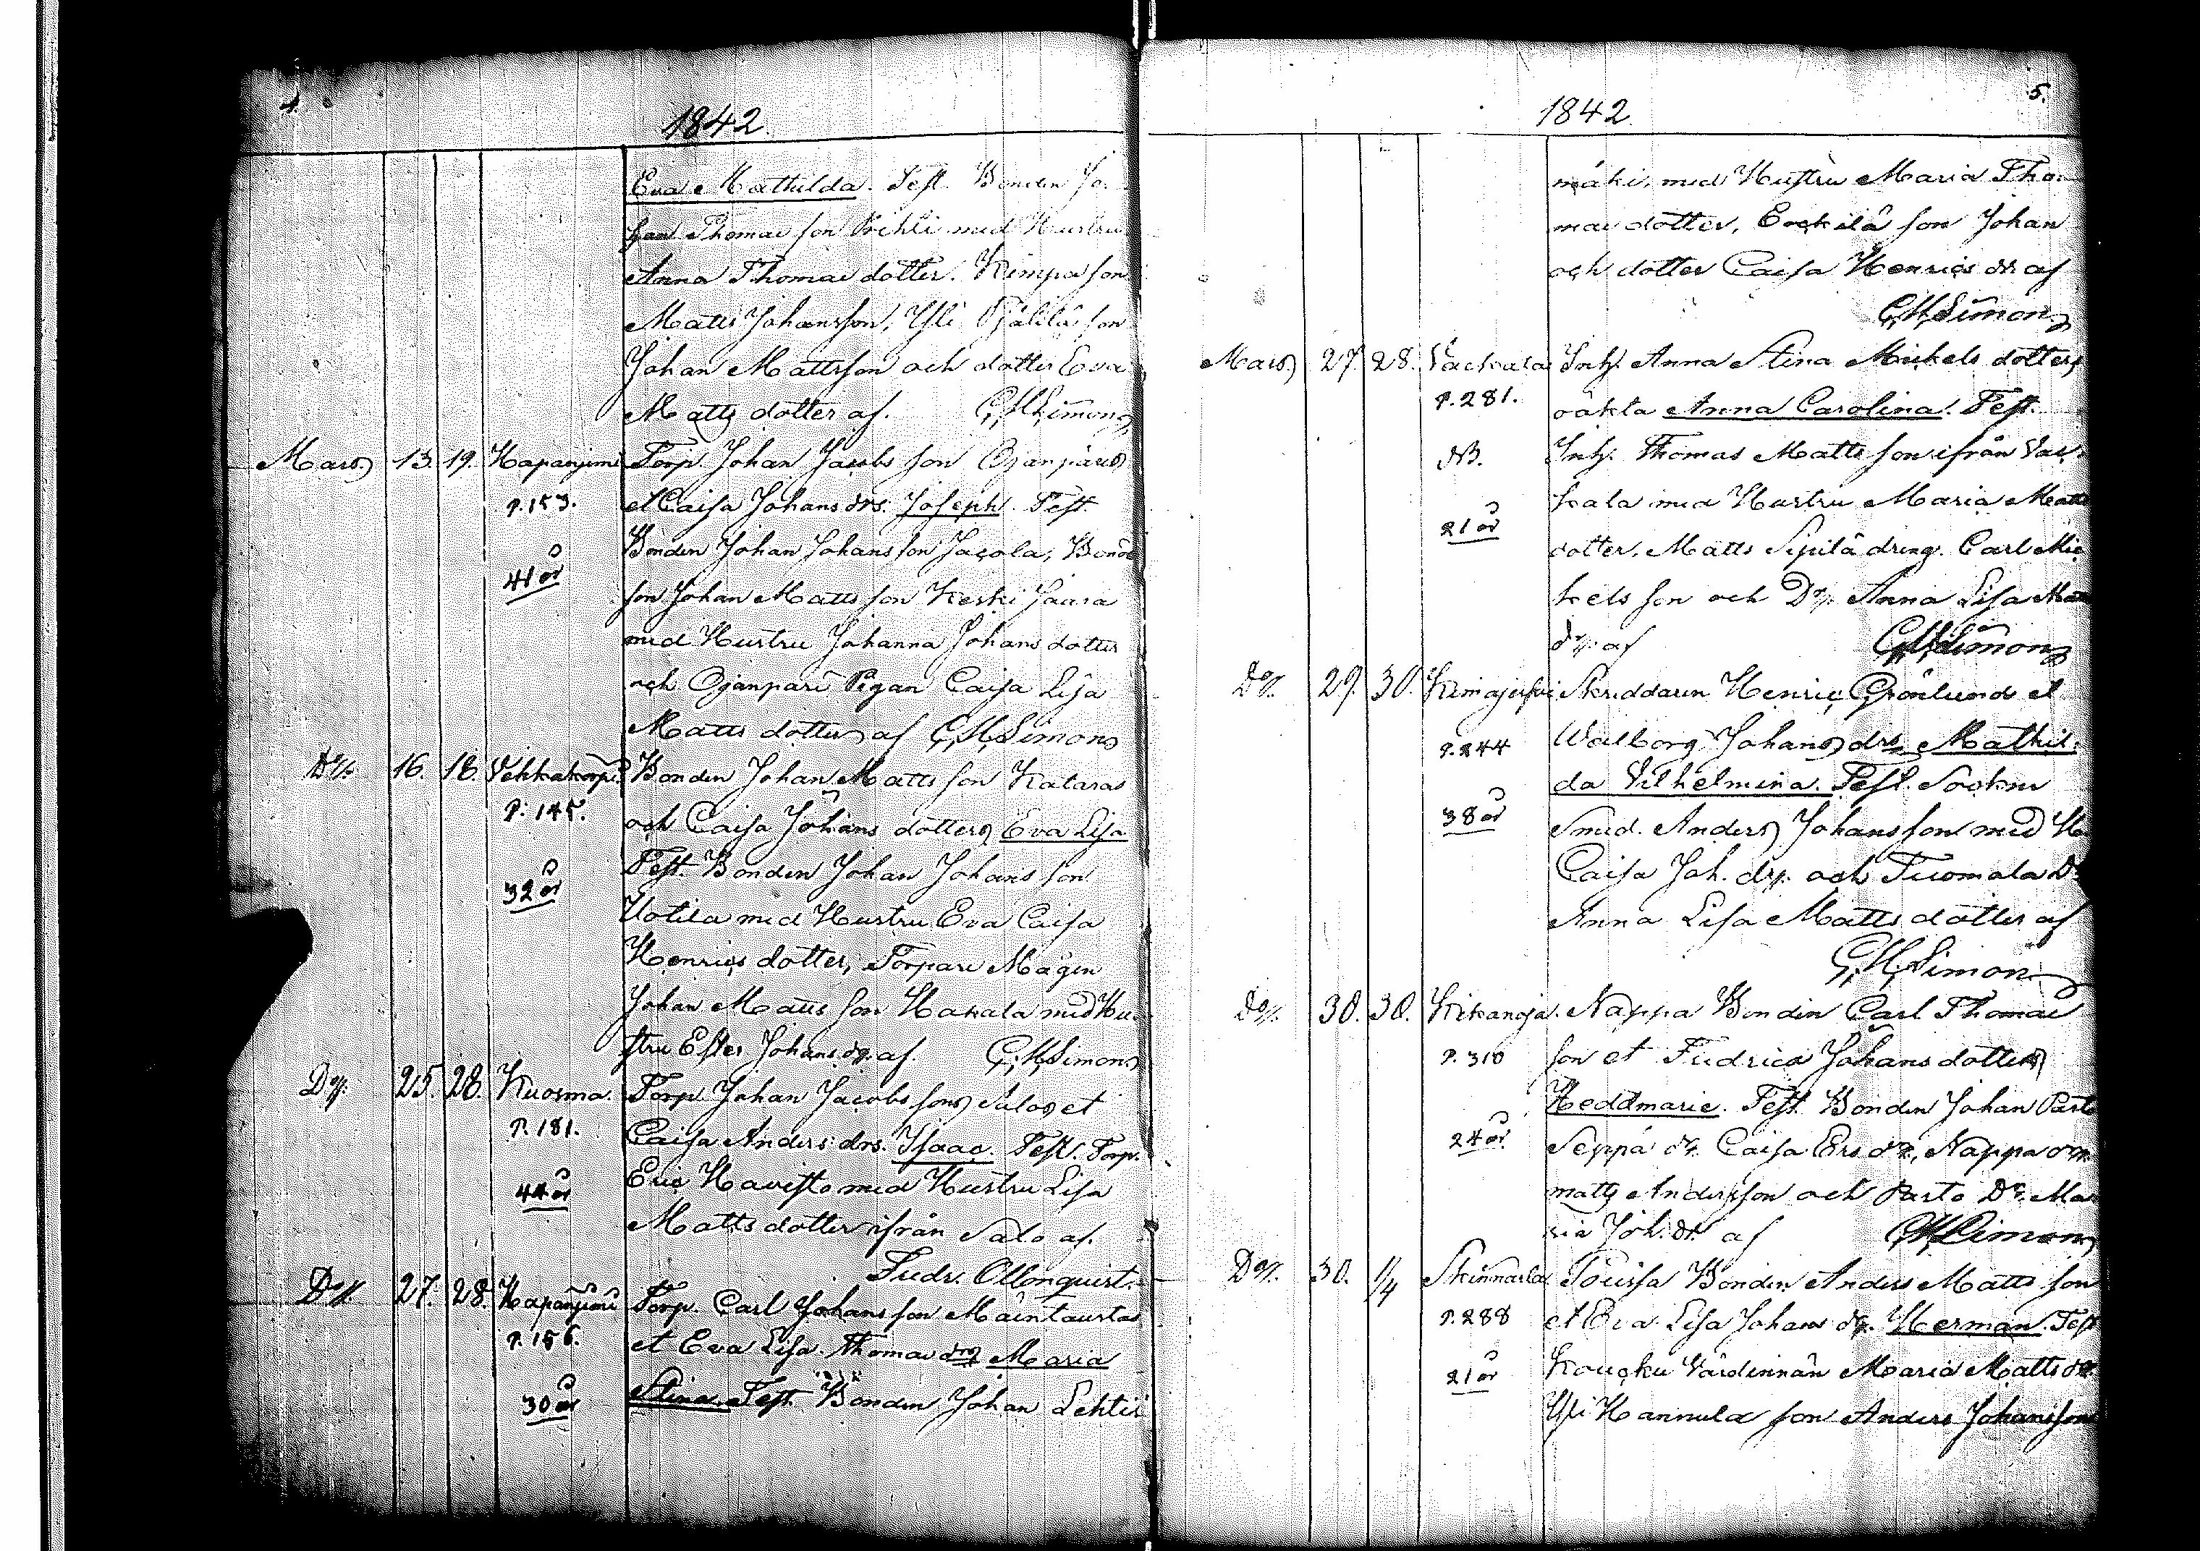 4.
1842
Eva Mathilda. Test. Bonden Jo-
han Thomas son Prihti med Hustru
Anna Thomas dotter. Kimpa son
Matts Johansson, Yli son
Johan Mattsson och dotter Eva
Matts dotter af. G.H. Simons
Mars 13. 19. Hapanjemi Torp. Johan Jacobs son Ojanpares
p. 153. et Caisa Johans drs. Joseph. Test.
Bonden Johan Johans son Jacola, Bonde
41 år
son Johan Matts son Keski Jaara
med Hustru Johanna Johans dotter
och Ojanpari Pigan Caisa Lisa
Matts dotter af G.H. Simons
Do. 16. 18. Vehkakorpi Bonden Johan Matts son Kataras
p. 145. och Caisa Johans dotters Eva Lisa
Test. Bonden Johan Johans son
32 år
Uotila med Hustru Eva Caisa
Henrics dotter, Torpare Mågen
Johan Matts son Hakala med Hu-
stru Ester Johans dr. af. G.H. Simons
Do. 25. 28. Kuosma Torp. Johan Jacobs sons Salos et
p. 181. Caisa Anders drs. Isaac. Test. Torp.
44 år Eric Havisto med Hustru Lisa
Matts dotter ifrån Salo af.
Fredr. Ollonquist.
Do. 27. 28. Hapanjemi Torp. Carl Johans son Mäintaustas
p. 156. et Eva Lisa Thomas drs Maria
30 år Stina. Test. Bonden Johan Lehti
5.
1842
mäki, med Hustru Maria Tho-
mas dotter, Eockilä son Johan
och dotter Caisa Henrics dr af
G.H. Simons
Mars 27. 28. Vackala Inh. Anna Stina Mickels dotters
p. 281. oäkta Anna Carolina. Test.
NB. Inh. Thomas Matts son ifrån Vac-
kala med Hustru Maria Matts
21 år
dotter, Matts Sipilä dreng. Carl Mic
kels son och Do. Anna Lisa
dr. af G.H. Simons
Do. 29. 30. Kimajerfvi Skreddaren Henric Grönlunds et
p. 244 Walborg Johans drs Mathil-
da Vilhelmina. Test. Sockne
38 år Smed. Anders Johansson med H.
Caisa Joh. dr. och Tuomala D.
Anna Lisa Matts dotter af
G.H. Simons
Do. 30. 30. Kikanoja Nappa Bonden Carl Thomas
p. 310 son et Fredrica Johans dotters
Heddmarie. Test. Bonden Johan Parto
24 år Seppä dr. Caisa Ers dr, Nappa
matts Andersson och Parto Dr. Ma
ria Joh. dr. af G.H. Simons
Do. 30. 1/4 Skinnarla Toursa Bonden Anders Matts son
p. 288 et Eva Lisa Johans dr. Herman. Test
21 år Koucku Värdinnan Maria Matts dr.
Yli Hannula son Anders Johansson